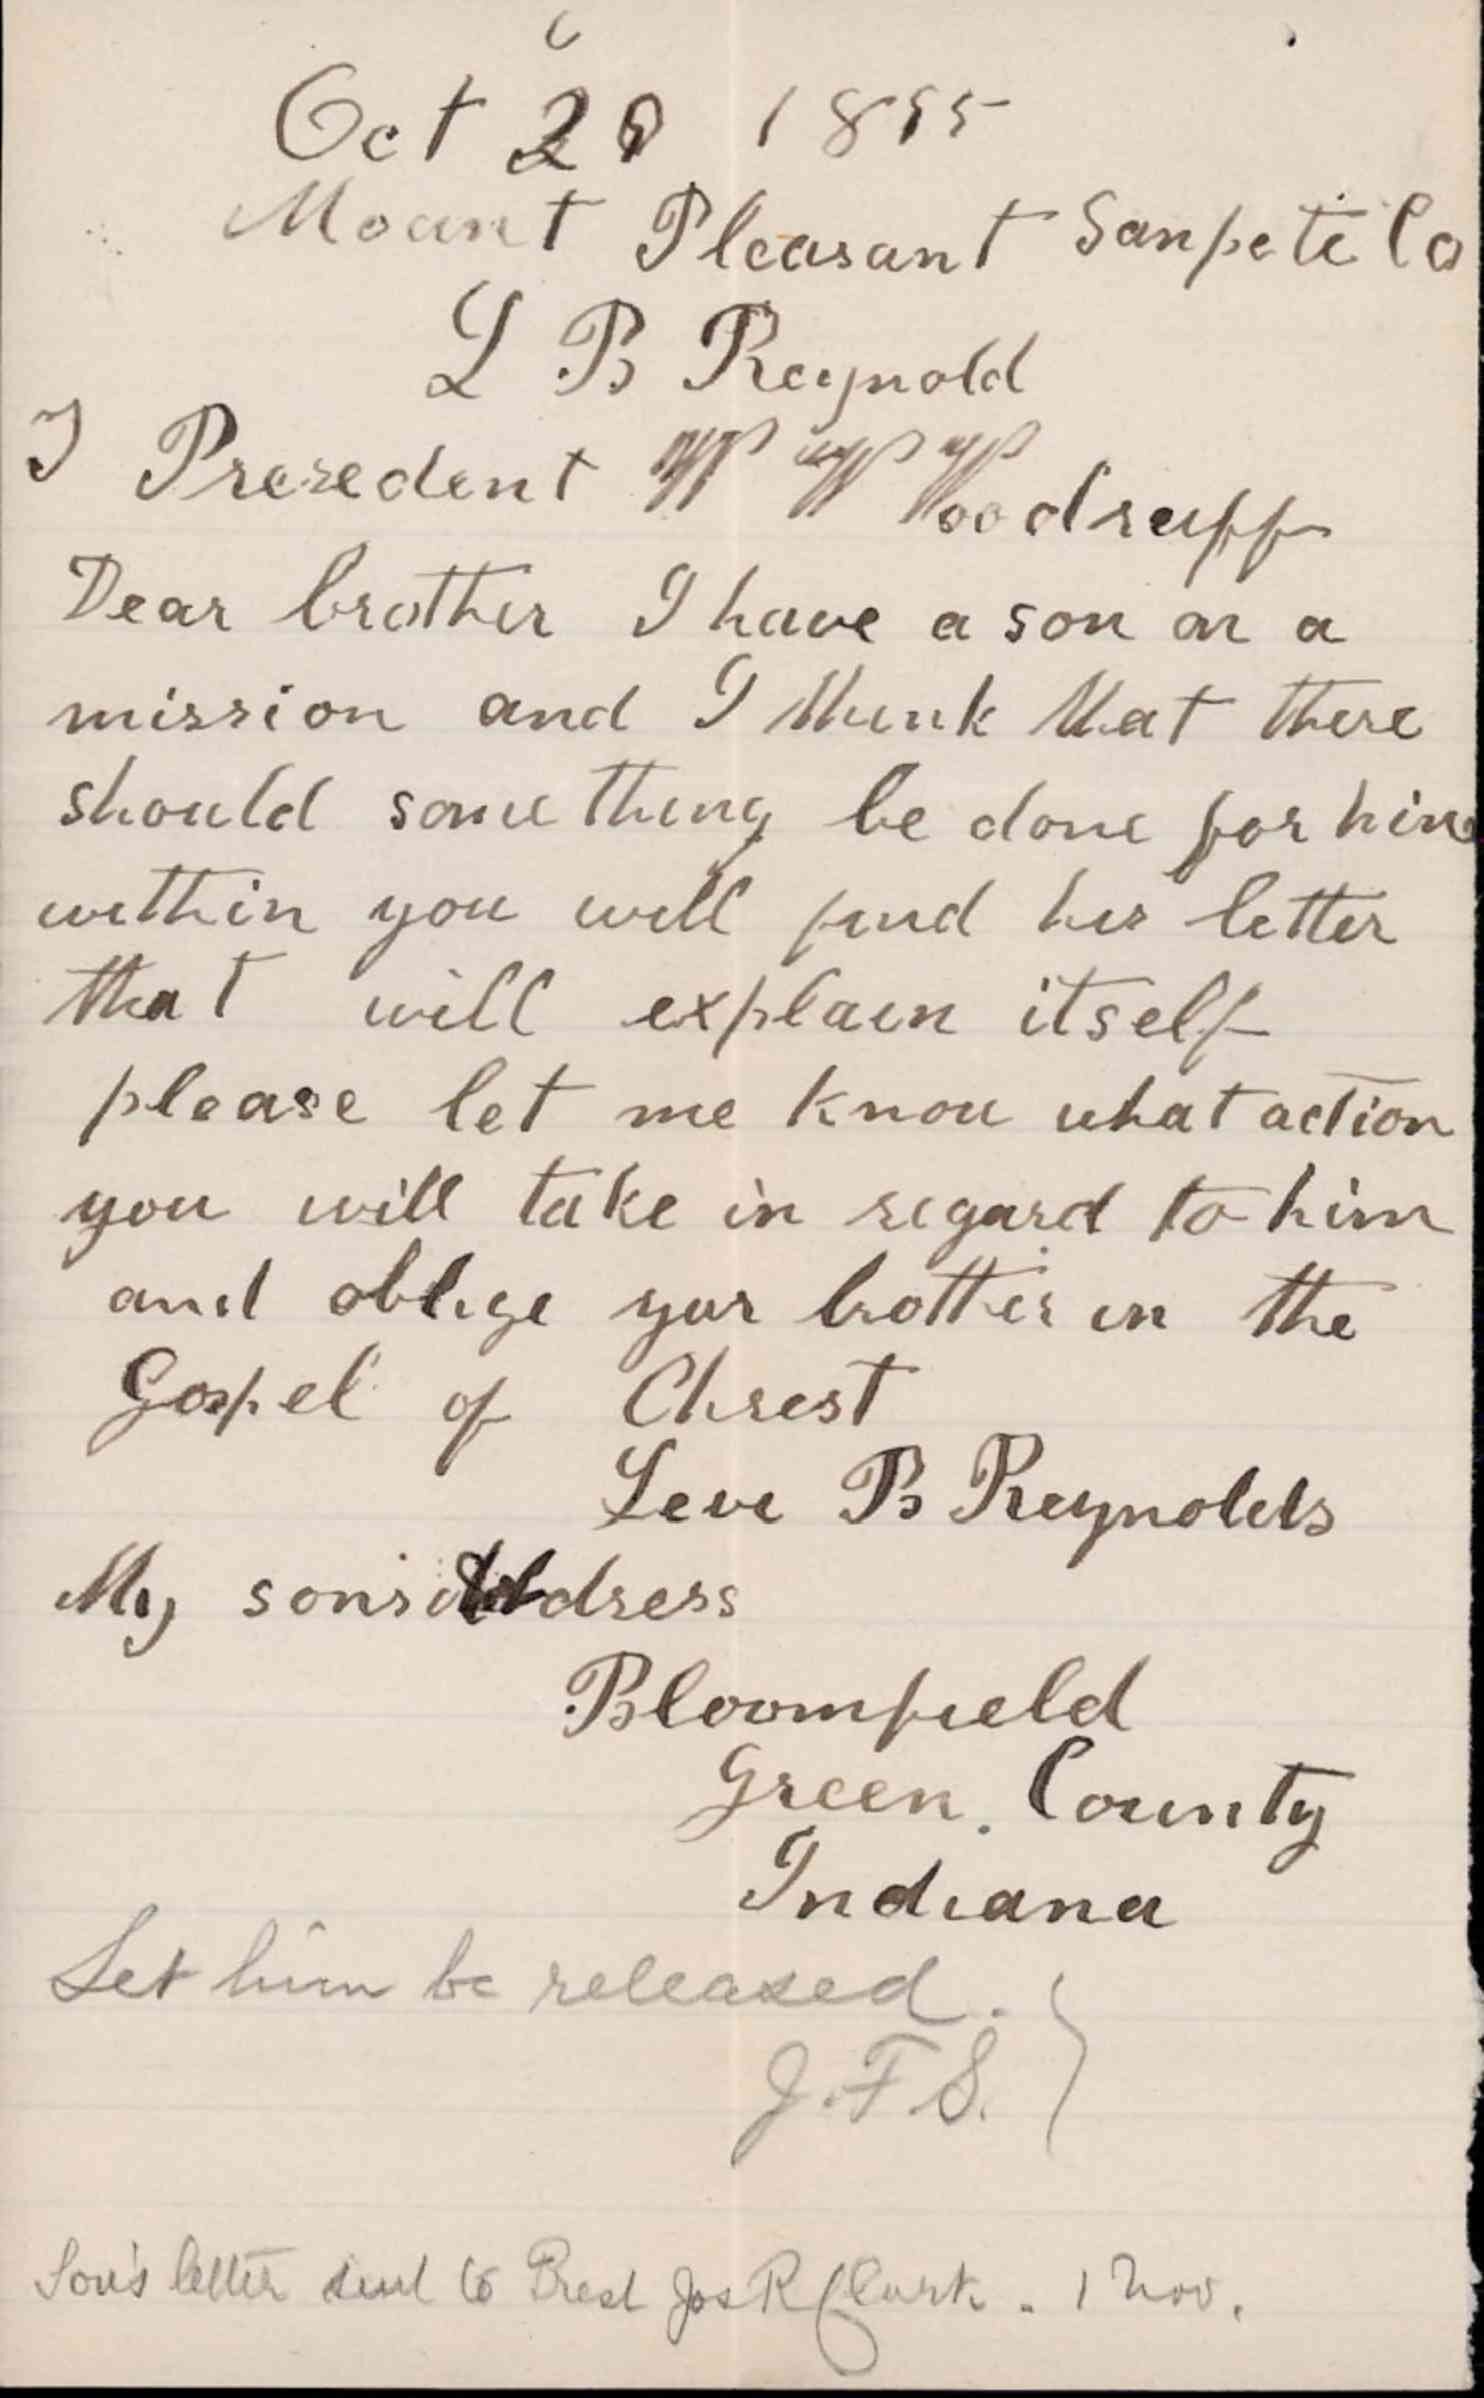 Oct 29 1895
Mount Pleasant Sanpete Co
L B Reynold
Presedent W Woodruff
Dear brother I have a son on a
mission and I think that there
should some thing be done for him
within you will find his letter
that will explain itself
please let me know what action
you will take in regard to him
and oblige yor brother in the
Gospel of Christ
Levi B Reynolds
My sons address
Bloomfield
Green. County
Indiana
Let him be released.
J.F.S.
Son's letter sent to Prest Jos R Clark. 1 Nov.